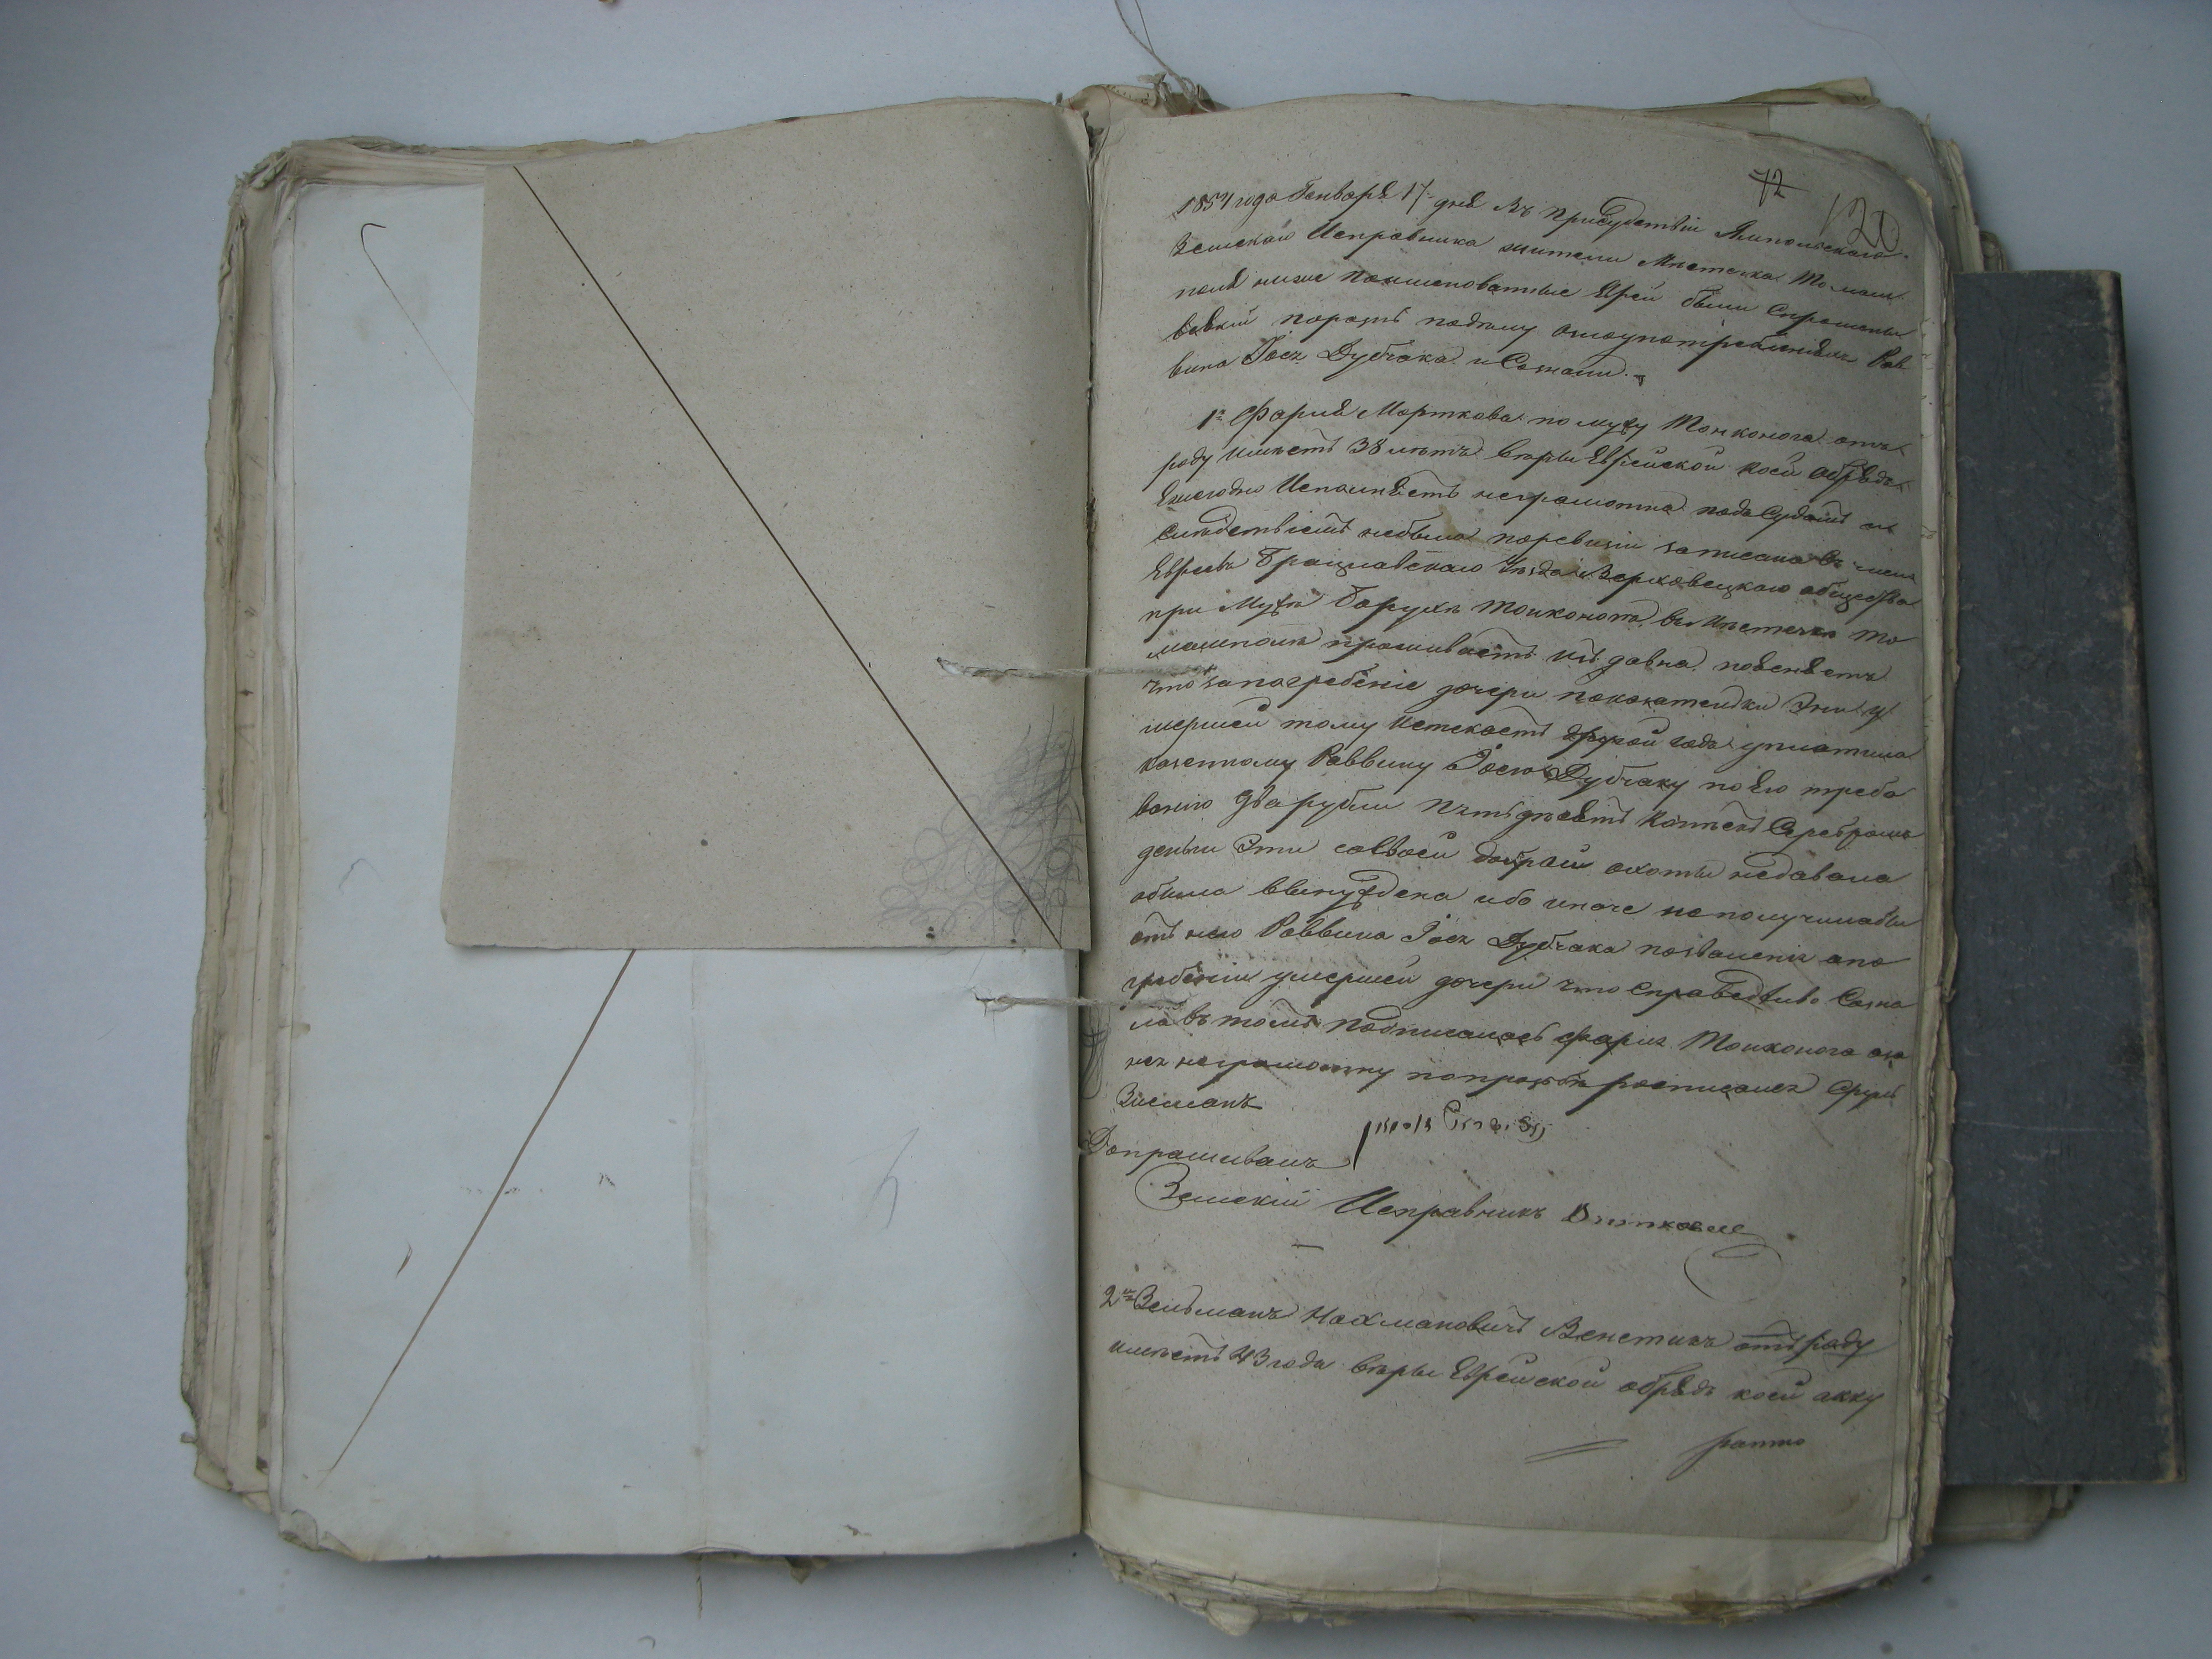 72
120
1854 года Генваря 17 дня Въ присудствіи Ямпольскаго
Земскаго Исправника жители Мѣстечка Томаш
поля ниже поименованные Евреи были спрошены
порознь подѣлу озлоупотребленіяхъ Рав
вина Іося Дубчака и Сознали.
1я Фария Морткова по мужу Тонконога отъ
роду имѣетъ 38 лѣтъ вѣры Еврейской коей обряды
Ежегодно Исполняетъ неграмотна подсудомъ и
слѣдствіемъ небыла поревизіи записана въ числѣ
Евреевъ Брацлавскаго уѣзда Верховецкаго общества
при Мужѣ Борухѣ Тонконога, въ Мѣстечкѣ То
машполѣ проживаетъ изъ давна, поясняетъ
что запогребеніе дочери показателки Эни у
мершей тому истекаетъ другой годъ уплатила
казенному Раввину Іосю Дубчаку по Его требо
ванію два рубли пятьдесятъ копѣекъ Серебромъ
деньги Эти со своей доброй охоты недавала
а была вынуждена ибо иначе не получилабы
отъ него Раввина Іося Дубчака позволенія опо
гребеніи умершей дочери что Справедливо Созна
ла въ томъ подписалась Фария Тонконога а за
нея неграмотну попросьбѣ росписался Сруль
Зисманъ
Допрашивалъ
Земскій Исправникъ
2й Зельманъ Нахмановичъ Венетикъ отъ роду
имѣетъ 43 года вѣры Еврейской обряды коей акку
ратно